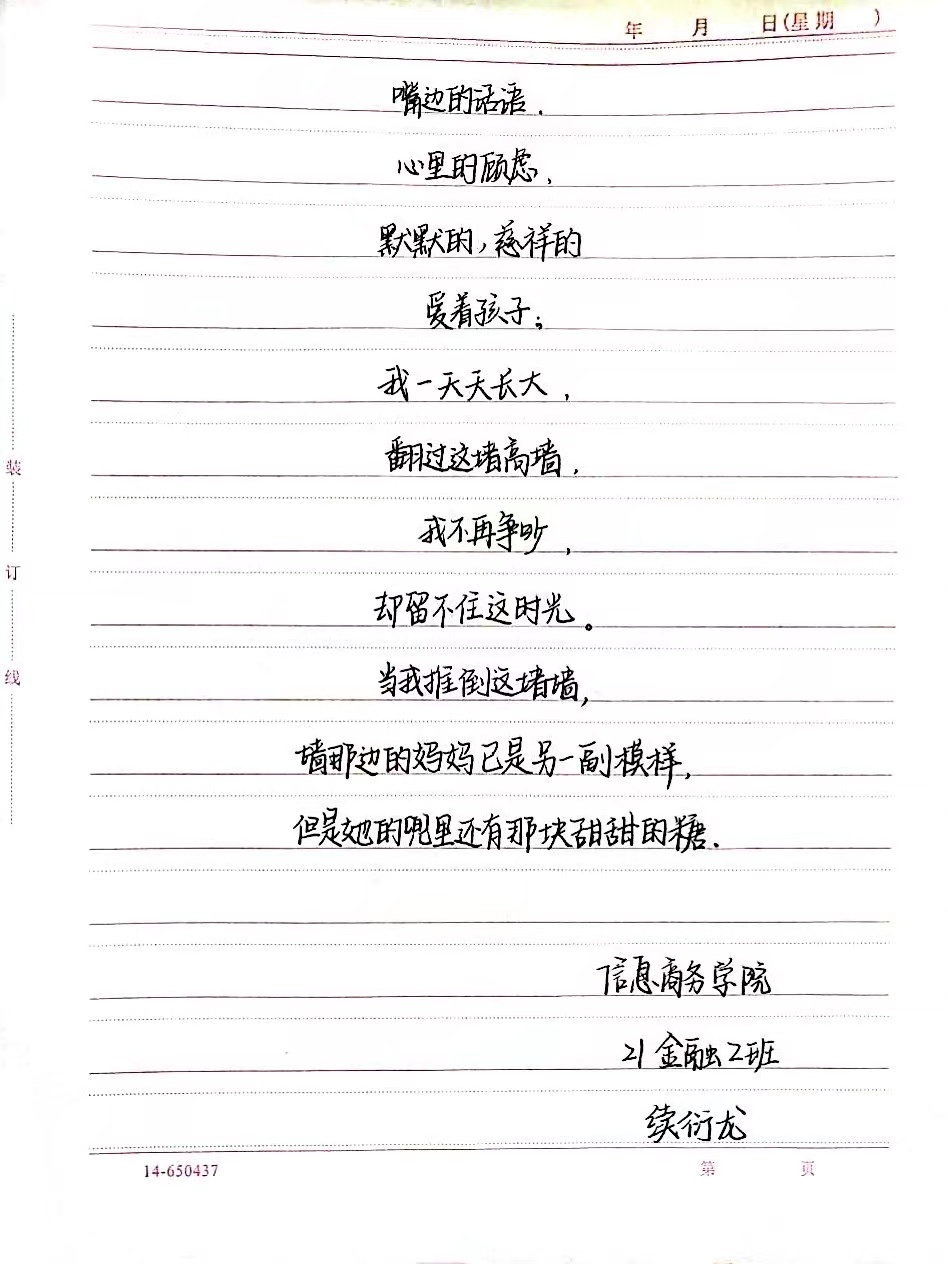 年 月 日(星期 )
嘴边的话语.
心里的顾虑,
默默的,慈祥的
爱着孩子;
我一天天长大,
翻过这堵高墙,
我不再争吵,
却留不住这时光。
当我推倒这堵墙,
墙那边的妈妈已是另一副模样,
但是她的兜里还有那块甜甜的糖.
信息商务学院
21金融2班
续衍龙
14-650437 第 页
装
订
线